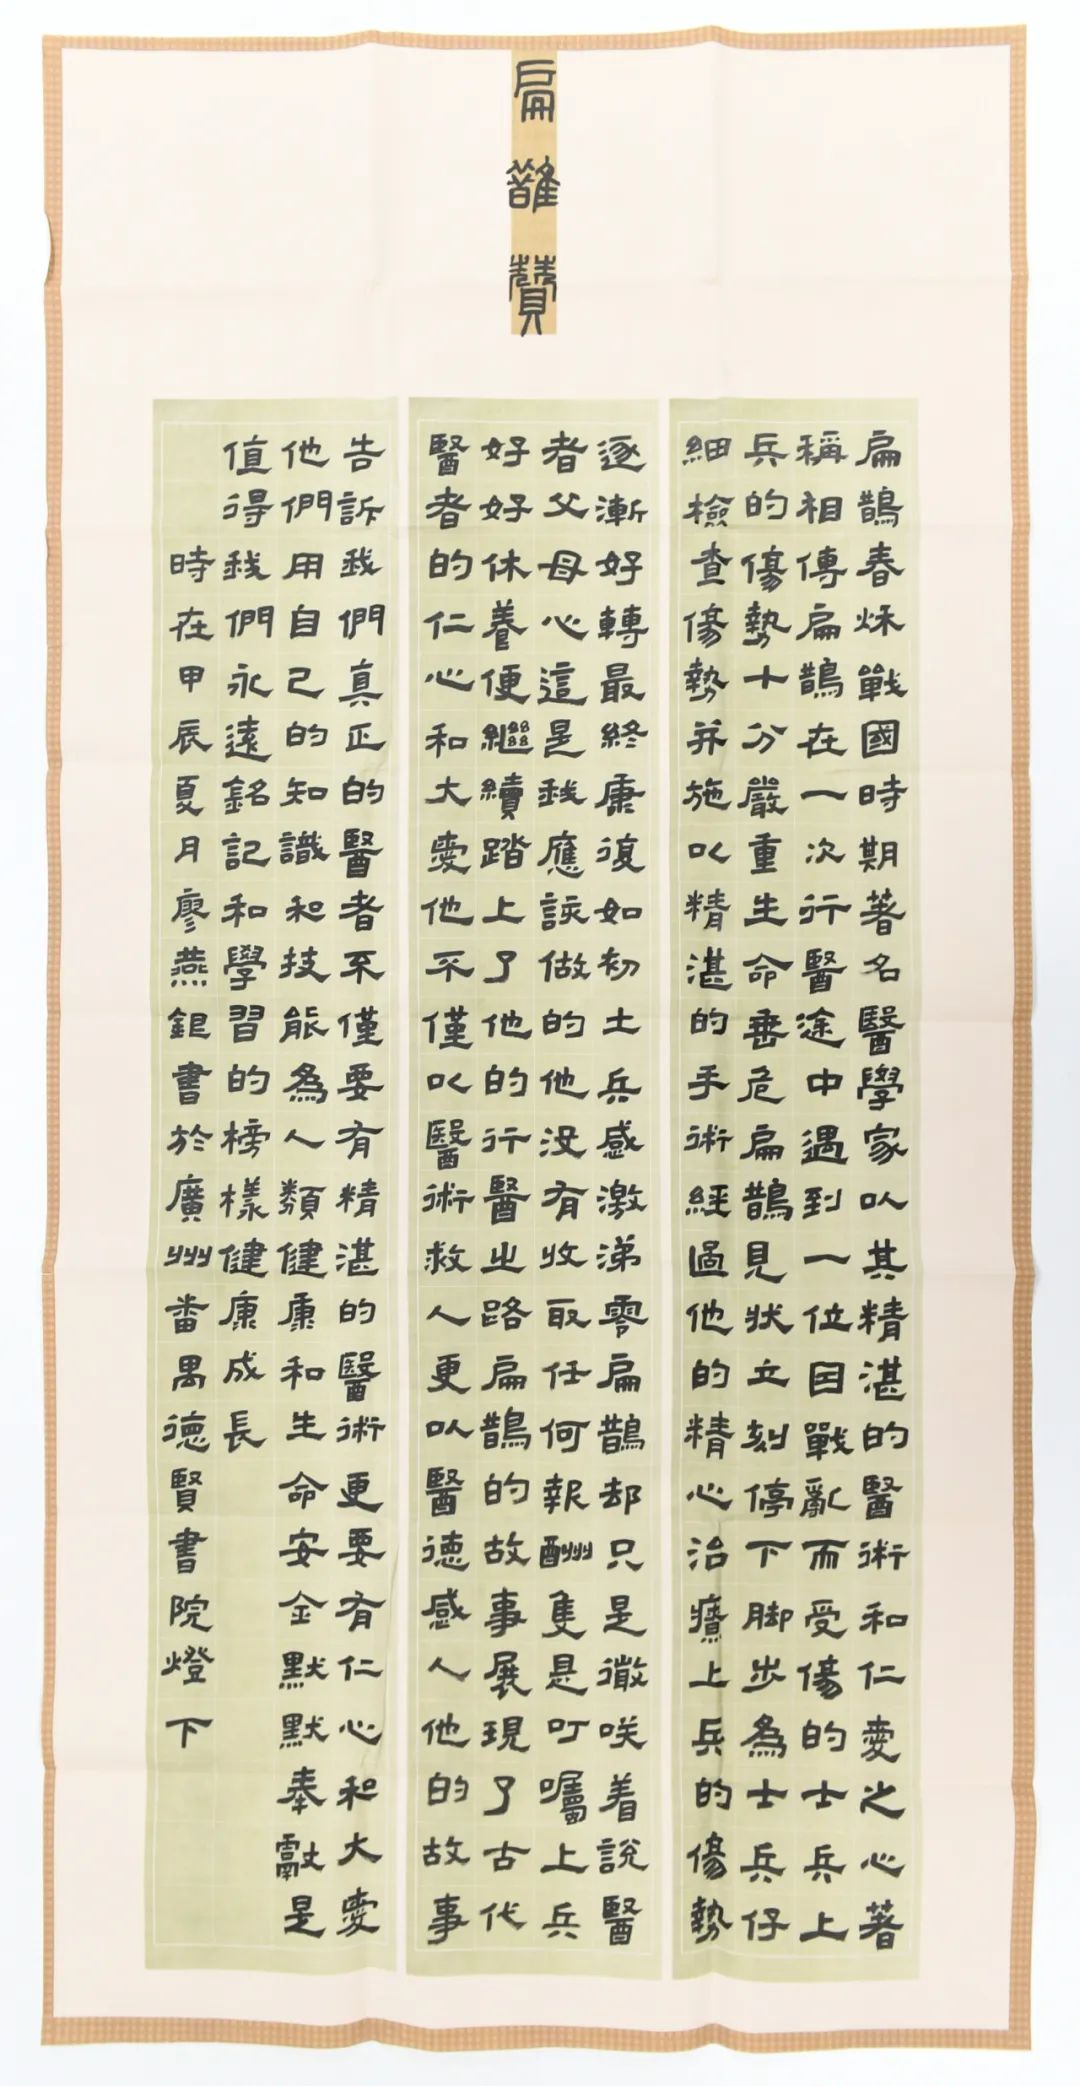 扁鵲贊
扁鵲春秌戰國時期著名醫學家以其精湛的醫術和仁愛之心著
稱相傳扁鵲在一次行醫途中遇到一位因戰亂而受傷的士兵上
兵的傷勢十分嚴重生命垂危扁鵲見狀立刻停下脚步為士兵仔
細檢查傷勢并施以精湛的手術經過他的精心治療上兵的傷勢
逐漸好轉最終康復如初士兵感激涕零扁鵲却只是微咲着說醫
者父母心這是我應該做的他没有收取任何報酬隻是叮囑上兵
好好休養便繼續踏上了他的行醫之路扁鵲的故事展現了古代
醫者的仁心和大愛他不僅以醫術救人更以醫德感人他的故事
告訴我們真正的醫者不僅要有精湛的醫術更要有仁心和大愛
他們用自己的知識和技能為人類健康和生命安全默默奉獻是
值得我們永遠銘記和學習的榜樣健康成長
時在甲辰夏月廖燕鉅書於廣州番禺德賢書院燈下